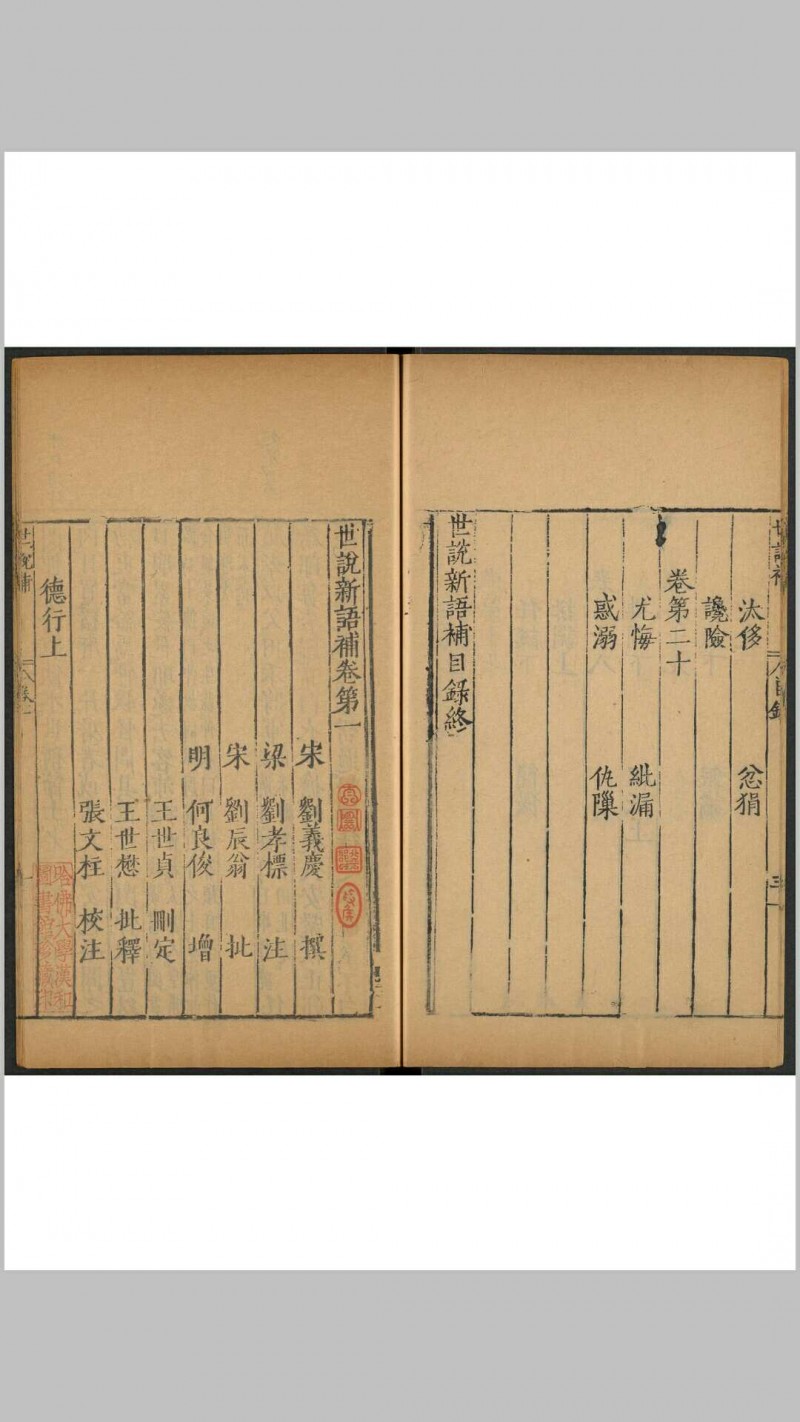 汰侈 忿狷
讒險
卷第二十
尤悔 紕漏
惑溺 仇隟
世說新語補目錄終
世說新語補卷第一
宋 劉義慶 撰
梁 劉孝標 注
宋 劉辰翁 批
明 何良俊 增
王世貞 刪定
王世懋 批釋
張文柱 校注
德行上
哈佛大學漢和
圖書館珍藏印